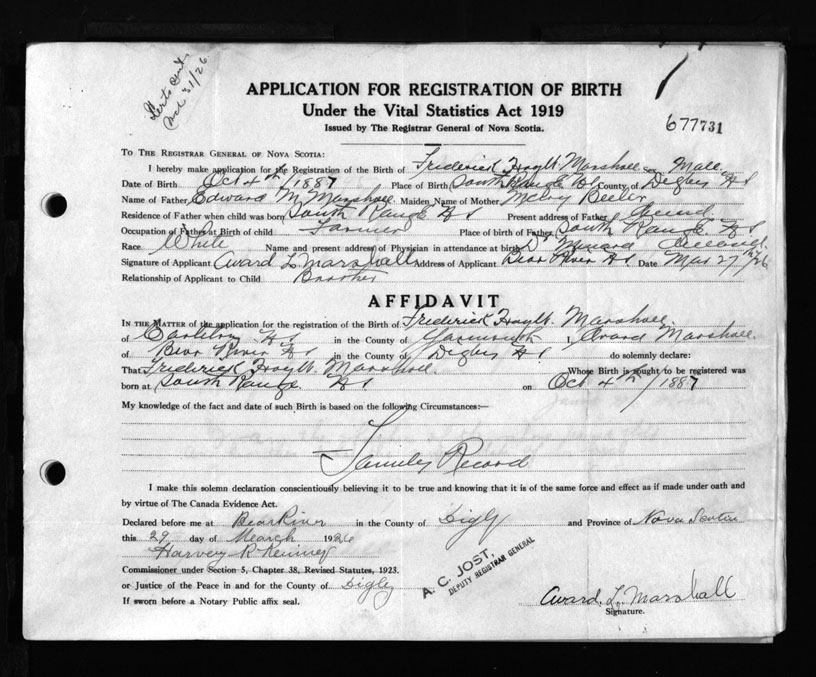 Certs sent
Mar 31/26
APPLICATION FOR REGISTRATION OF BIRTH
Under the Vital Statistics Act 1919
Issued by The Registrar General of Nova Scotia.
677731
TO THE REGISTRAR GENERAL OF NOVA SCOTIA:
I hereby make application for the Registration of the Birth of Frederick Hoyt Marshall Sex Male
Date of Birth Oct 4th/1887 Place of Birth South Range NS County of Digby NS
Name of Father Edward M. Marshall Maiden Name of Mother Mary Beeler
Residence of Father when child was born South Range NS Present address of Father
Occupation of Father at Birth of child Farmer Place of birth of Father South Range NS
Race White Name and present address of Physician in attendance at birth Dr
Signature of Applicant Avard L Marshall Address of Applicant Bear River NS. Date Mar 27th/26
Relationship of Applicant to Child Brother
AFFIDAVIT
IN THE MATTER of the application for the registration of the Birth of Frederick Hoyt. Marshall
of Carleton NS in the County of Yarmouth I, Avard Marshall.
of Bear River NS in the County of Digby NS do solemnly declare:
That Frederick Hoyt. Marshall. Whose Birth is sought to be registered was
born at South Range NS on Oct 4th/1887
My knowledge of the fact and date of such Birth is based on the following Circumstances:—
Family Record
I make this solemn declaration conscientiously believing it to be true and knowing that it is of the same force and effect as if made under oath and
by virtue of The Canada Evidence Act.
Declared before me at Bear River in the County of Digby and Province of Nova Scotia
this 29 day of March 1926
Harvey R
Commissioner under Section 5, Chapter 38, Revised Statutes, 1923.
or Justice of the Peace in and for the County of Digby
If sworn before a Notary Public affix seal.
A. C. JOST.
DEPUTY REGISTRAR GENERAL
Avard. L. Marshall
Signature.